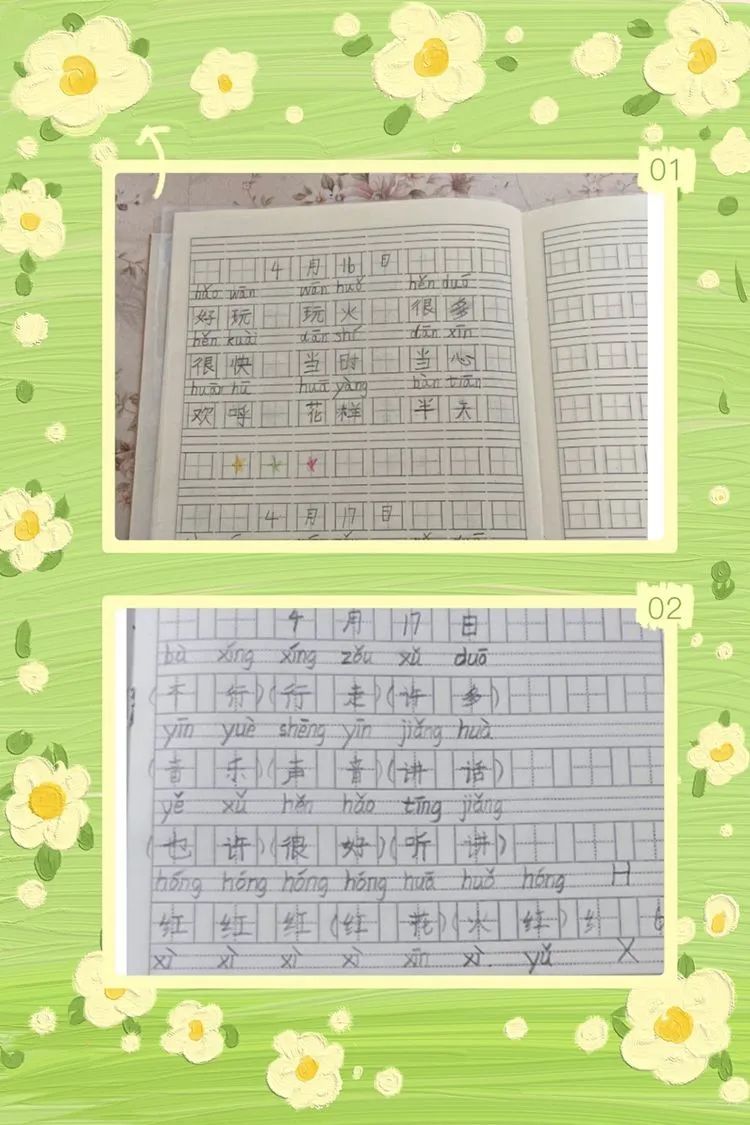 01
4月16日
hǎo wán wán huǒ hěn duō
好玩 玩火 很多
hěn kuài dāng shí dāng xīn
很快 当时 当心
huān hū huā yàng bàn tiān
欢呼 花样 半天
4月17日
02
4月17日
bù xíng xíng zǒu xǔ duō
(不行)(行走)(许多)
yīn yuè shēng yīn jiǎng huà
(音乐)(声音)(讲话)
yě xǔ hěn hǎo tīng jiǎng
(也许)(很好)(听讲)
hóng hóng hóng hóng huā huǒ hóng H
红红红(红花)(火红)纟6
xì xì xì xì xīn xì. yǔ X